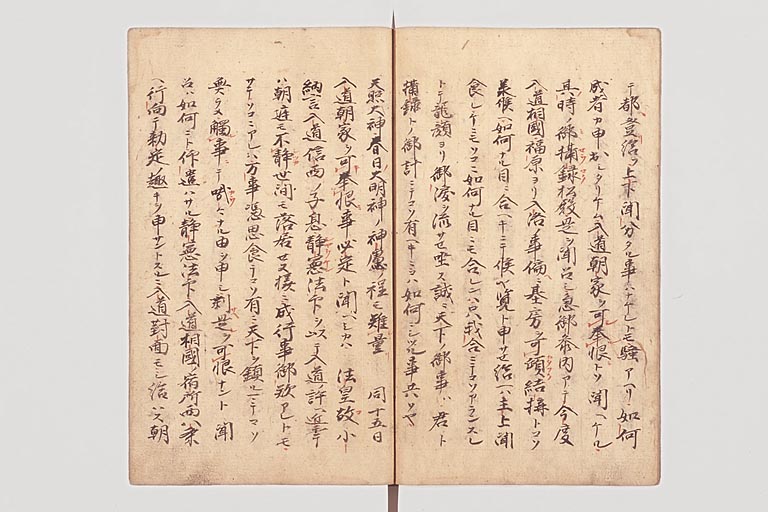 テ都登給フ上下聞分タル事ハナケレトモ騒アヘリ如何
成者カ申出シタリケム入道朝家ヲ可奉恨トソ聞ヘケル
其時ノ御摂録松殿是ヲ聞召シ急御参内アテ今度
入道相國福原ヨリ入洛事偏ニ基房可傾結構トコソ
承候ヘ如何ナル目ニ合ヘキニテ候ヤ覧ト申サセ給ヘハ主上聞
食シケニモソコニ如何ナル目ニモ合シハ只我合ニテコソアランスレ
トテ龍顔ヨリ御涙ヲ流サセ坐ス誠ニ天下ノ御事ハ君ト
摂録トノ御計ニテコソ有ヘキニコハ如何ニシツル事共ソヤ
天照大神春日大明神ノ神慮ノ程モ難量 同十五日
入道朝家ヲ可奉恨事必定ト聞ヘシカハ 法皇故小
納言入道信西ノ子息静憲法印ヲ以テ入道ノ許ヘ近年
ハ朝廷モ不静世間モ落居セス様ニ成行事御歎アレトモ
サテソコニアレハ万事憑思食テコソ有ニ天下ヲ鎮ルニテコソ
無カラメ觸事ニテ嗷々ナル由ヲ申シ剰是ヲ可恨ナント聞
召ハ如何ニト仰遣ハサル静憲法印入道相國ノ宿所西八条
ヘ行向テ勅定ノ趣キヲ申サントスルニ入道對面モシ給ハス朝